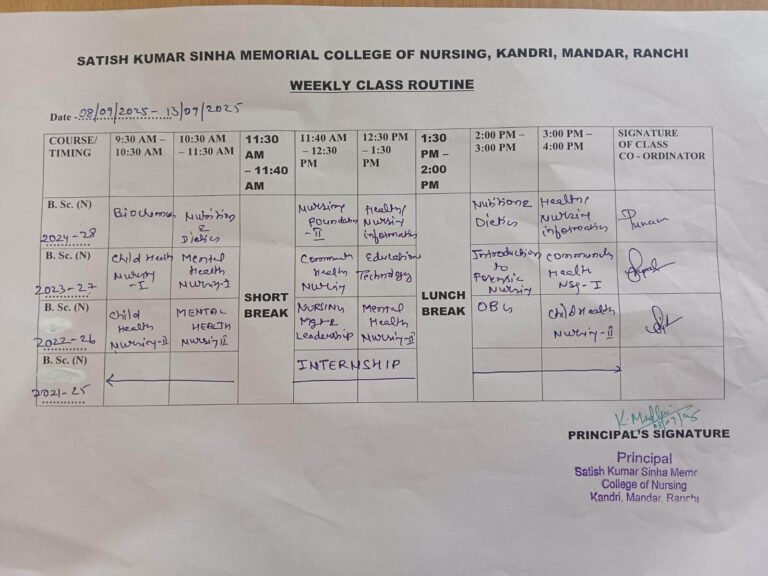 SATISH KUMAR SINHA MEMORIAL COLLEGE OF NURSING, KANDRI, MANDAR, RANCHI
WEEKLY CLASS ROUTINE
Date - 08/09/2025 - 13/09/2025
COURSE/ TIMING
9:30 AM – 10:30 AM
10:30 AM – 11:30 AM
11:30 AM – 11:40 AM
11:40 AM – 12:30 PM
12:30 PM – 1:30 PM
1:30 PM – 2:00 PM
2:00 PM – 3:00 PM
3:00 PM – 4:00 PM
SIGNATURE OF CLASS CO - ORDINATOR
B. Sc. (N) 2024-28
Biochem
Nutrition & Dietics
Nursing Foundation -II
Health/ Nursing informatics
Nutition & Dietics
Health/ Nursing informatics
Punam
B. Sc. (N) 2023-27
Child Health Nursing -I
Mental Health Nursing-I
SHORT BREAK
Community Health Nursing
Education Technology
LUNCH BREAK
Introduction to Forensic Nursing
Community Health Nsg-I
B. Sc. (N) 2022-26
Child Health Nursing-II
MENTAL HEALTH Nursing II
NURSING Mgt & Leadership
Mental Health Nursing-II
OBG
Child Health Nursing-II
B. Sc. (N) 2021-25
INTERNSHIP
PRINCIPAL'S SIGNATURE
Principal
Satish Kumar Sinha Memo
College of Nursing
Kandri, Mandar, Ranchi